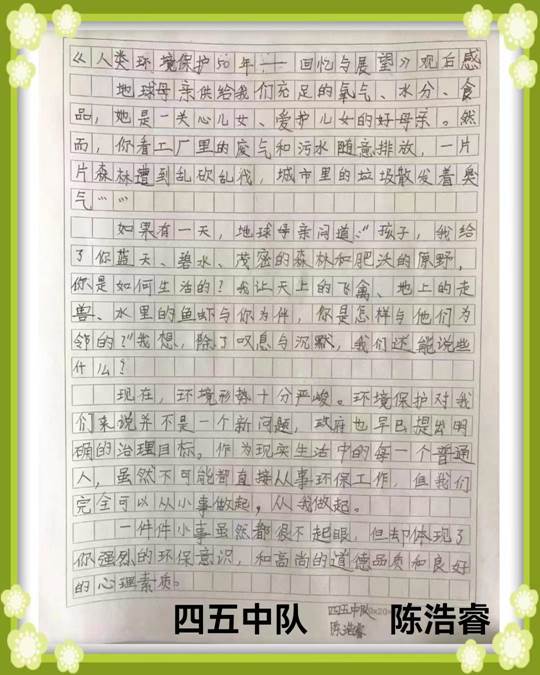 《人类环境保护50年——回忆与展望》观后感
地球母亲供给我们充足的氧气、水分、食
品，她是一关心儿女、爱护儿女的好母亲。然
而，你看工厂里的废气和污水随意排放，一片
片森林遭到乱砍乱伐，城市里的垃圾散发着臭
气……
如果有一天，地球母亲问道：“孩子，我给
了你蓝天、碧水、茂密的森林和肥沃的原野，
你是如何生活的？我让天上的飞禽、地上的走
兽、水里的鱼虾与你为伴，你是怎样与他们为
邻的？”我想，除了叹息与沉默，我们还能说些
什么？
现在，环境形势十分严峻。环境保护对我
们来说并不是一个新问题，政府也早已提出明
确的治理目标。作为现实生活中的每一个普通
人，虽然不可能都直接从事环保工作，但我们
完全可以从小事做起，从我做起。
一件件小事虽然都很不起眼，但却体现了
你强烈的环保意识，和高尚的道德品质和良好
的心理素质。
四五中队 20×20
陈浩睿
四五中队 陈浩睿